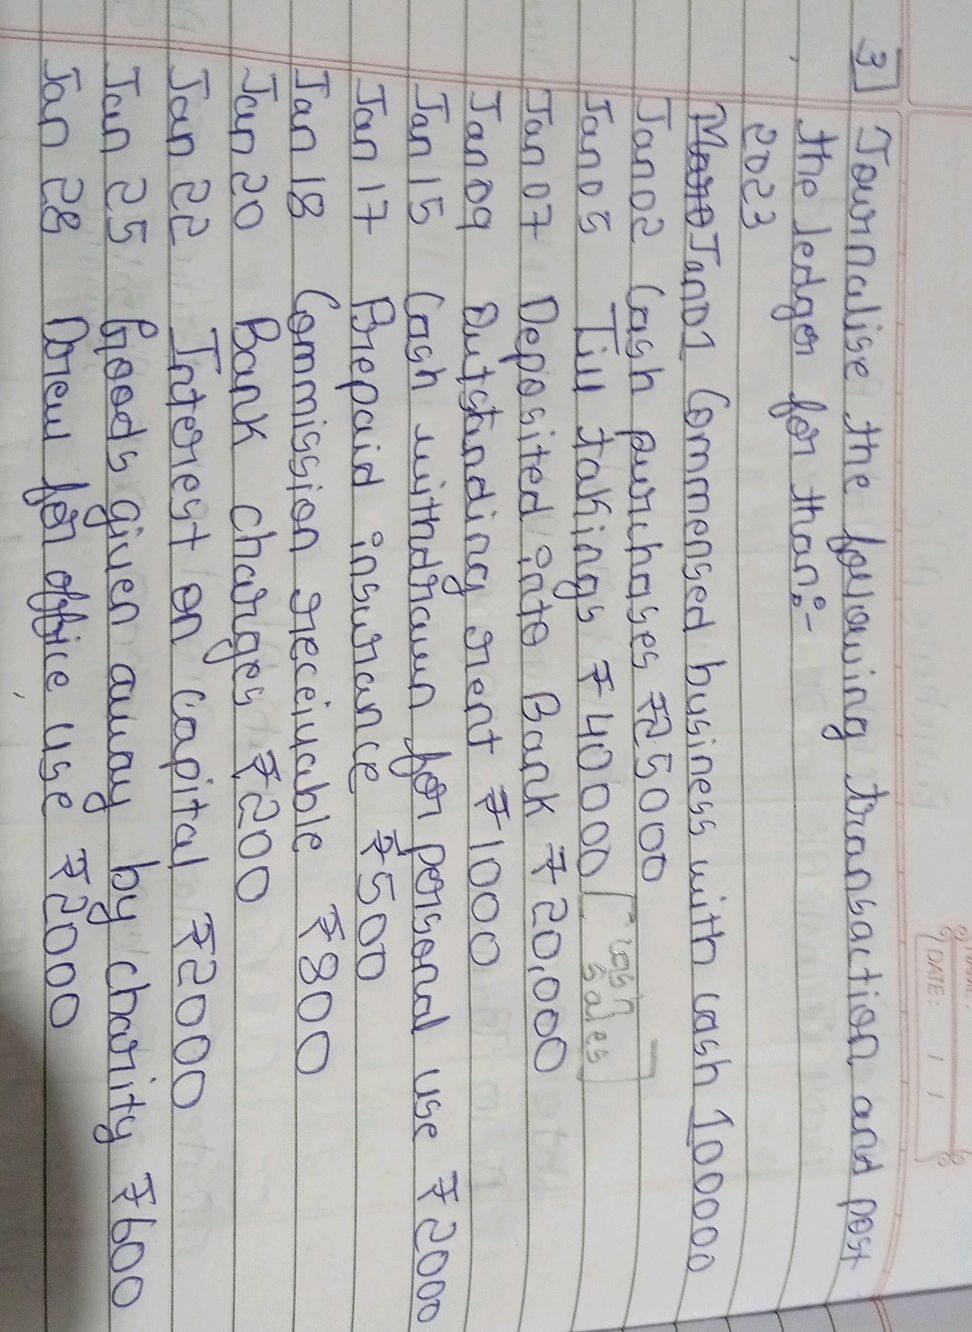 DATE: / /
3] Journalise the following transaction and post
the ledger for than:-
2023
Jan01 Commensed business with cash 100000
Jan02 Cash purchases ₹25000
Jan05 Till takings ₹40000 [cash sales]
Jan07 Deposited into Bank ₹20,000
Jan09 Outstanding rent ₹1000
Jan 15 Cash withdrawn for personal use ₹2000
Jan 17 Prepaid insurance ₹500
Jan 18 Commission receivable ₹800
Jan 20 Bank charges ₹200
Jan 22 Interest on capital ₹2000
Jan 25 Goods given away by charity ₹600
Jan 28 Drew for office use ₹2000